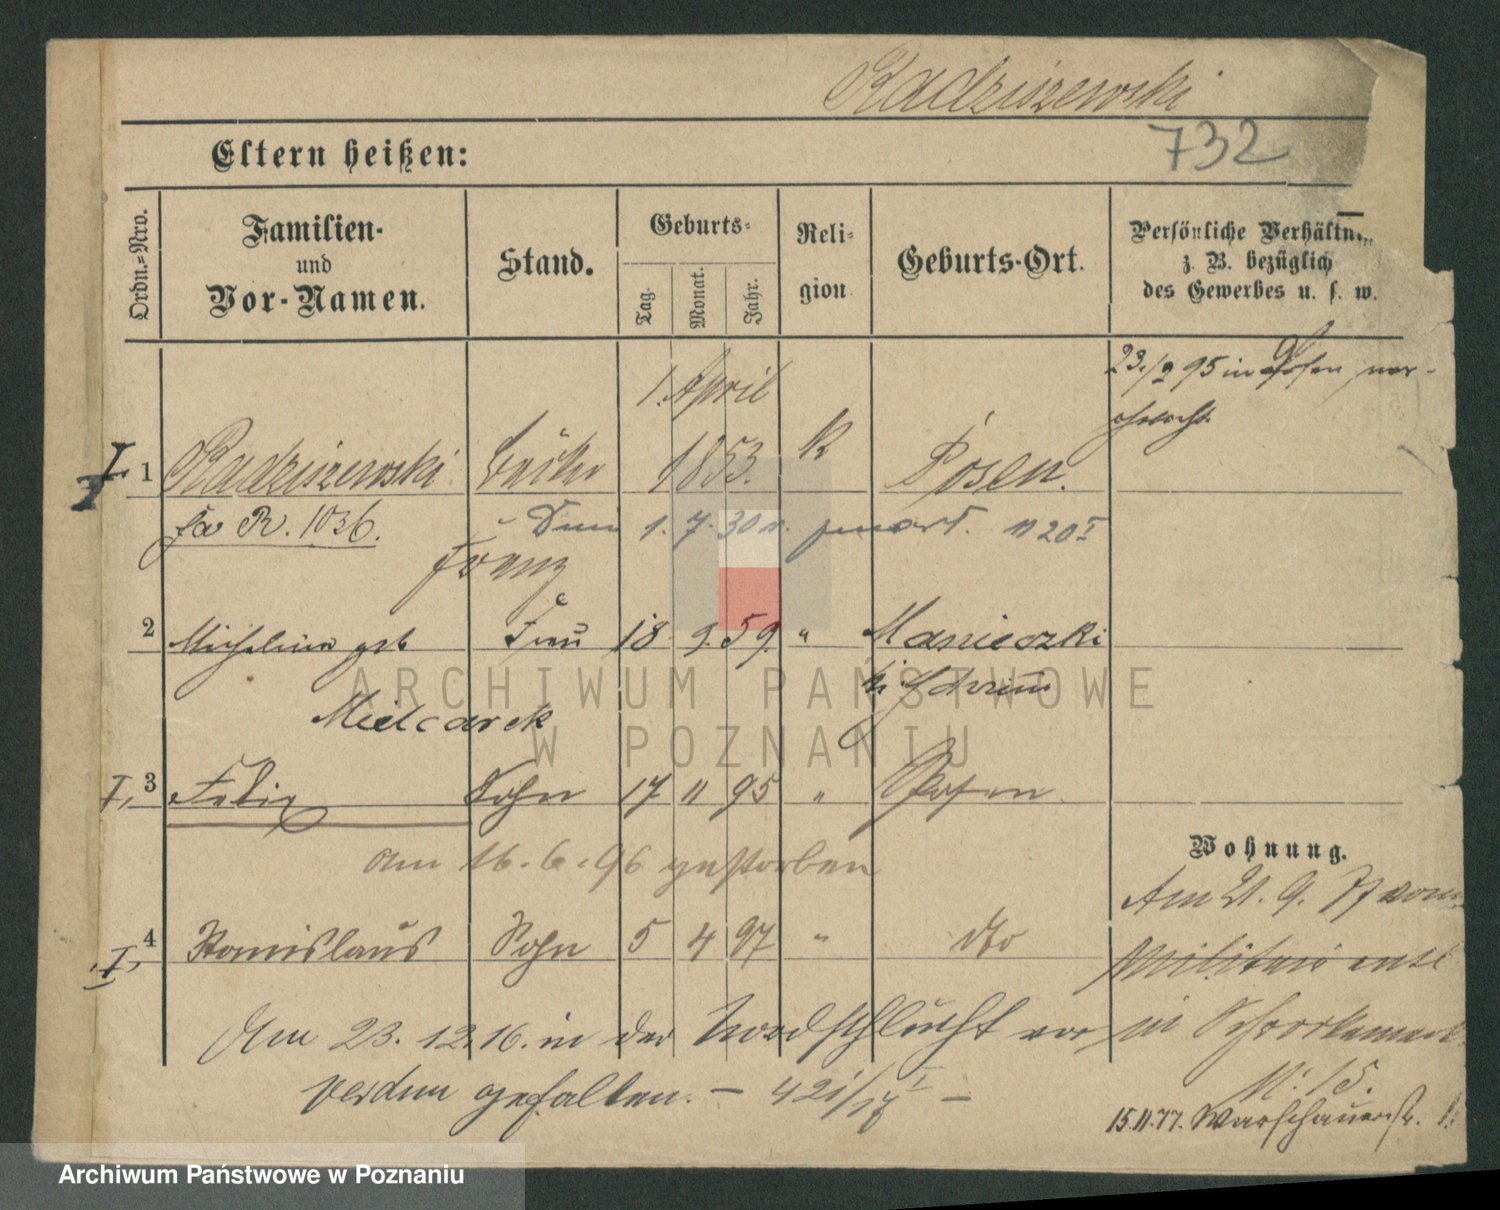 Radziszewski
732
Eltern heißen:
Ordn.=Nro.
Familien-
und
Vor-Namen.
Stand.
Geburts-
Tag.
Monat.
Jahr.
Reli-
gion
Geburts-Ort.
Persönliche Verhältn
z. B. bezüglich
des Gewerbes u. s. w.
23./9 95 in Posen
1. April
I. 1 Radziszewski 1853. K Posen.
R. 1036. 1. 7. 30 1120 I
Franz
2 Michalina geb Frau 18 9. 59. " Manieczki
Mielcarek
I, 3 Felix Sohn 17 11 95 " Posen
am 16. 6. 96 gestorben
Wohnung.
Am 21. 9. 77 vom
I, 4 Stanislaus Sohn 5 4 97 " dto
Militair entl
Am 23. 12. 16. in der Nordschlucht vor
in
Verdun gefallen. — 421/17 I —
N: 15.
15.11.77. Warschauerstr.
ARCHIWUM PAŃSTWOWE
W POZNANIU
Archiwum Państwowe w Poznaniu